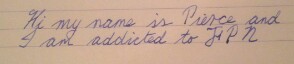 Hi my name is Pierce and
I am addicted to HPN